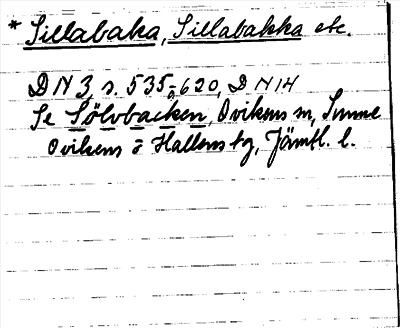 * Sillabaka, Sillabakka etc.
DN 3 s. 535, 620, DN 14
Se Sölvbacken, Ovikens sn,
Ovikens o Hallens tg, Jämtl. l.